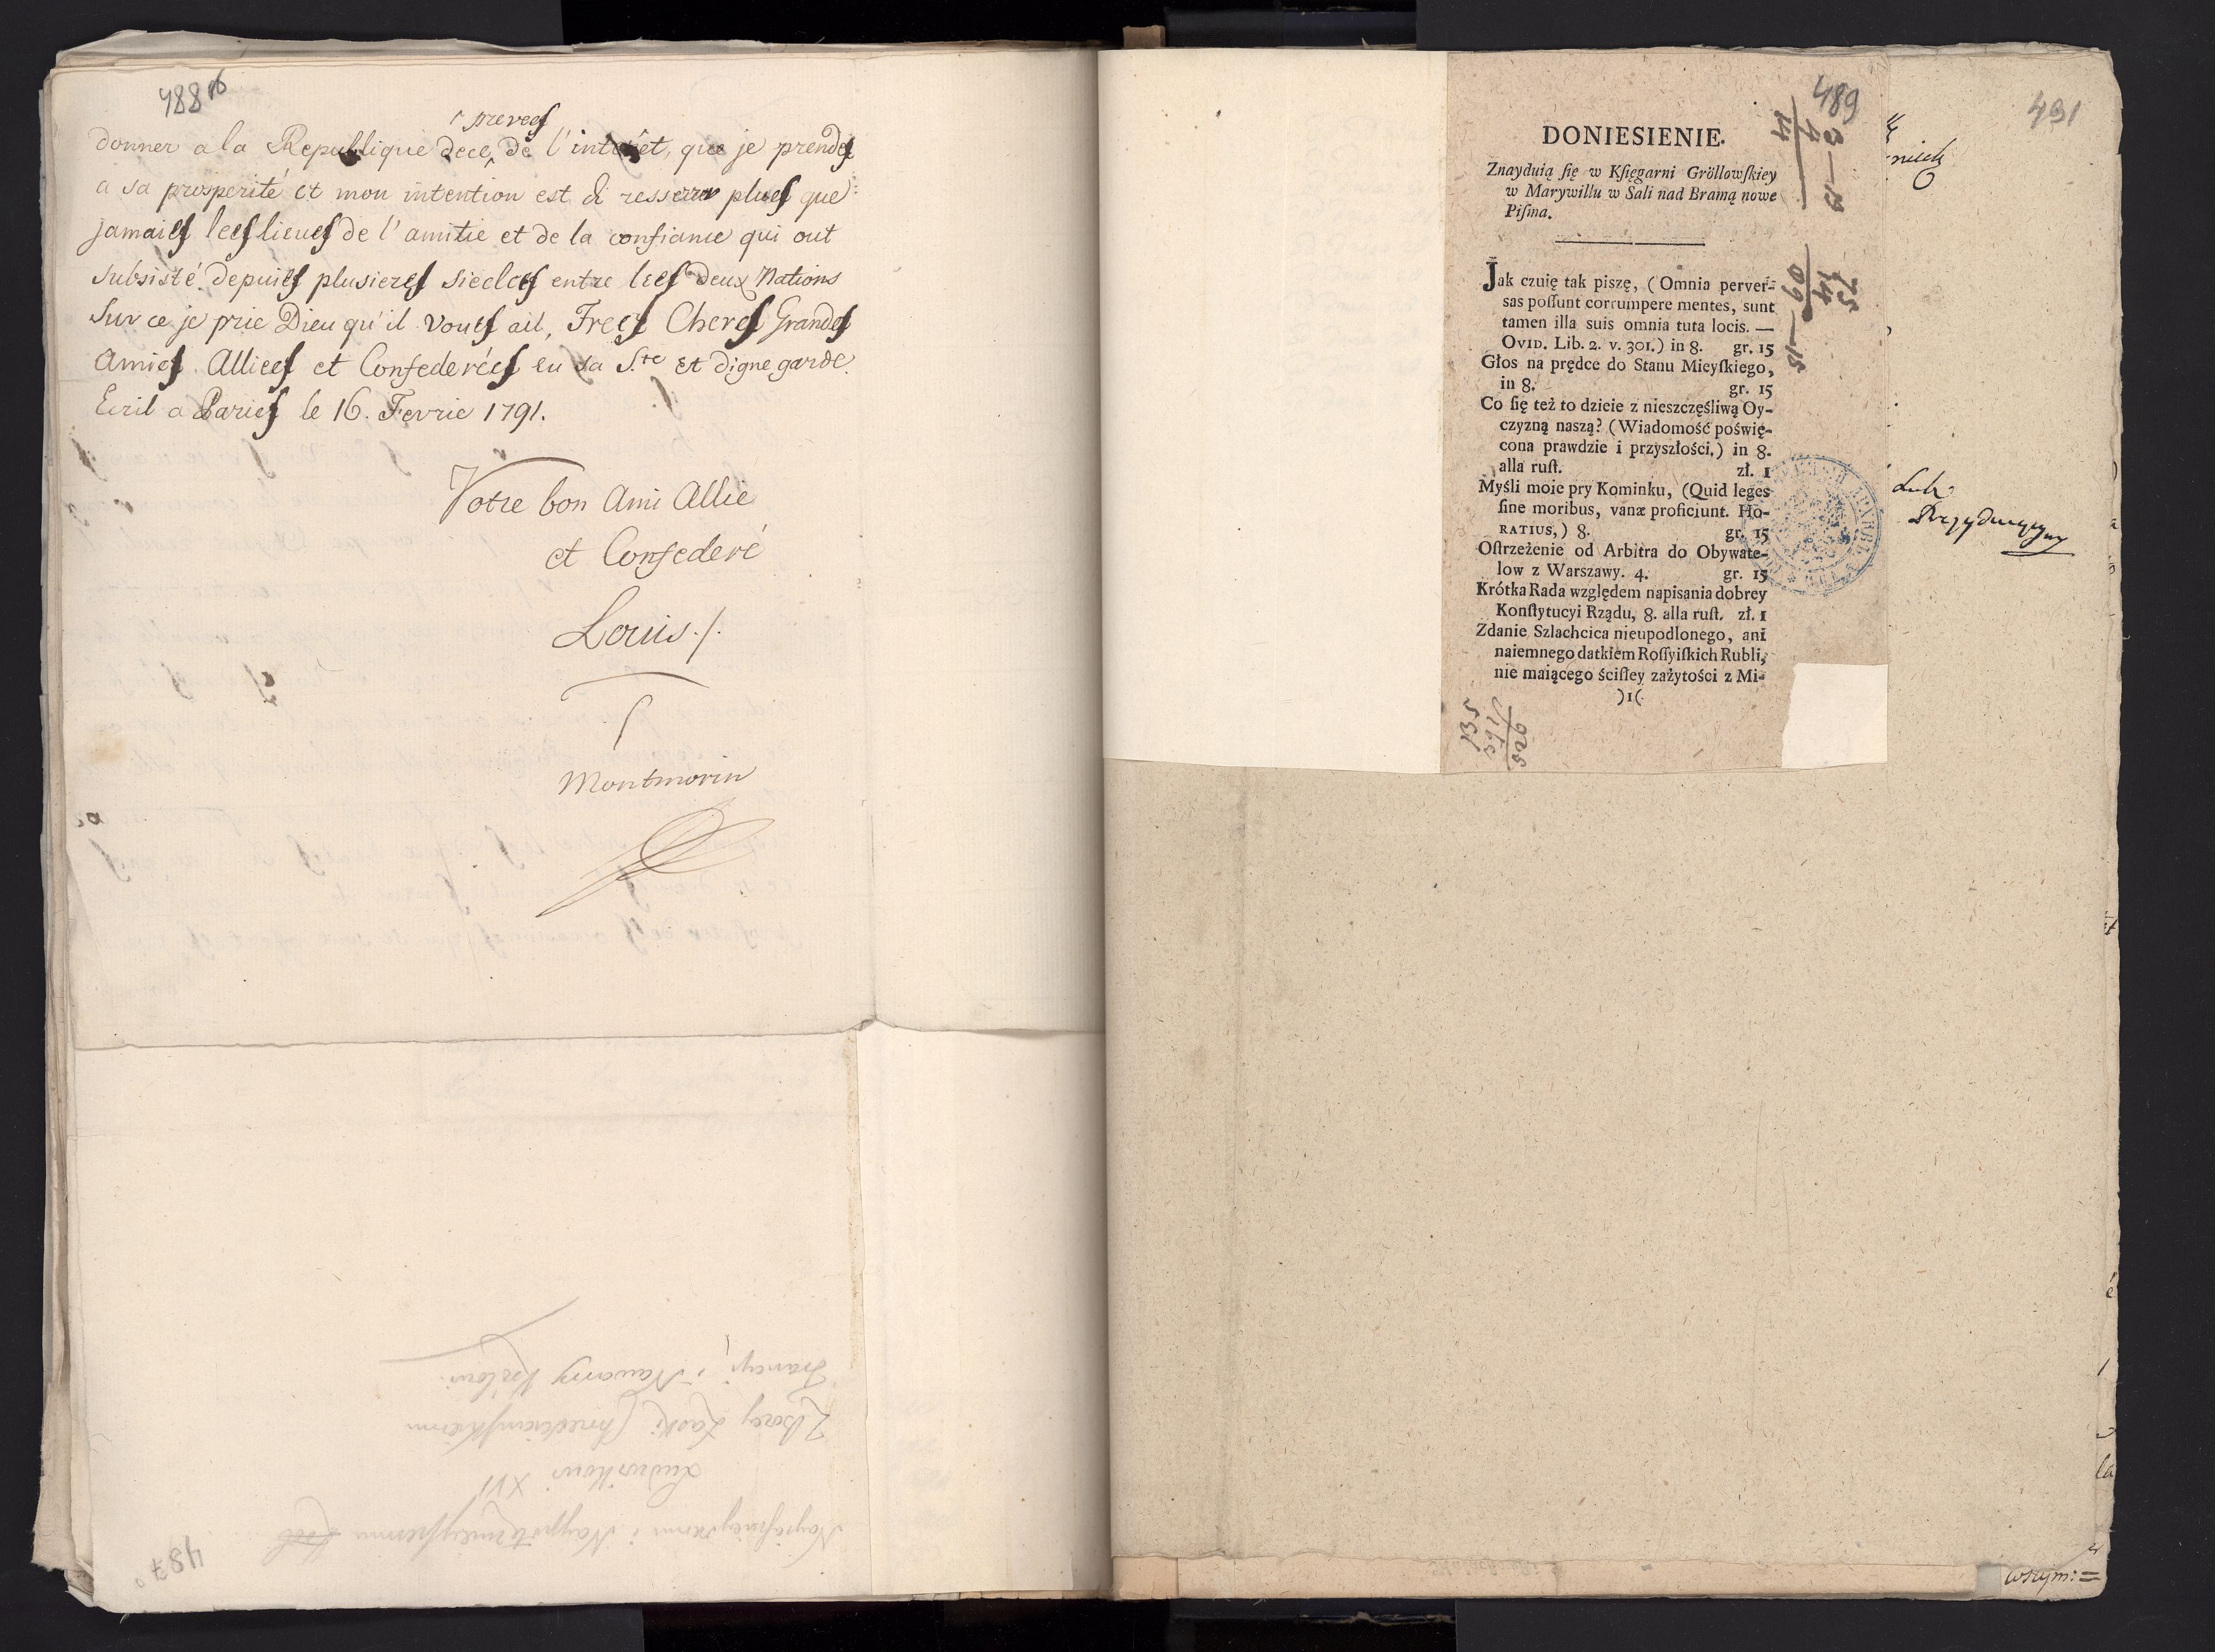 488
preuves
donner a la Republique dece, de l'intérêt, que je prendes
a sa prosperité et mon intention est di resserrer plues que
jamaies lees lieues de l'amitie et de la confiance qui ont
subsisté depuies plusieres siecles entre lees deux Nations
Sur ce je prie Dieu qu'il voues ail, Trees Cheres Grandes
Amies Alliees et Confederées en sa S.te et digne garde.
Ecril a Paries le 16. Fevrie 1791.
Votre bon Ami Allie
et Confederé
Louis./.
Montmorin
Nayiasnieyszemu i Naypotęznieyszemu
Ludwikowi XVI
Z Bożey Łaski Chrześcianskiemu
Francyi, i Nawarry Królowi.
487
489
DONIESIENIE.
Znayduią ſię w Kſięgarni Gröllowſkiey
w Marywillu w Sali nad Bramą nowe
Piſma.
Jak czuię tak piszę, (Omnia perver-
sas poſſunt corrumpere mentes, sunt
tamen illa suis omnia tuta locis. —
OVID. Lib. 2. v. 301.) in 8. gr. 15
Głos na prędce do Stanu Mieyſkiego,
in 8. gr. 15
Co ſię też to dzieie z nieszczęśliwą Oy-
czyzną naszą? (Wiadomość poświę-
cona prawdzie i przyszłości,) in 8.
alla ruſt. zł. 1
Myśli moie pry Kominku, (Quid leges
ſine moribus, vanæ proficiunt. HO-
RATIUS,) 8. gr. 15
Oſtrzeżenie od Arbitra do Obywate-
low z Warszawy. 4. gr. 15
Krótka Rada względem napisania dobrey
Konſtytucyi Rządu, 8. alla ruſt. zł. 1
Zdanie Szlachcica nieupodlonego, ani
naiemnego datkiem Roſſyiſkich Rubli,
nie maiącego ściſley zażytości z Mi-
)1(
491